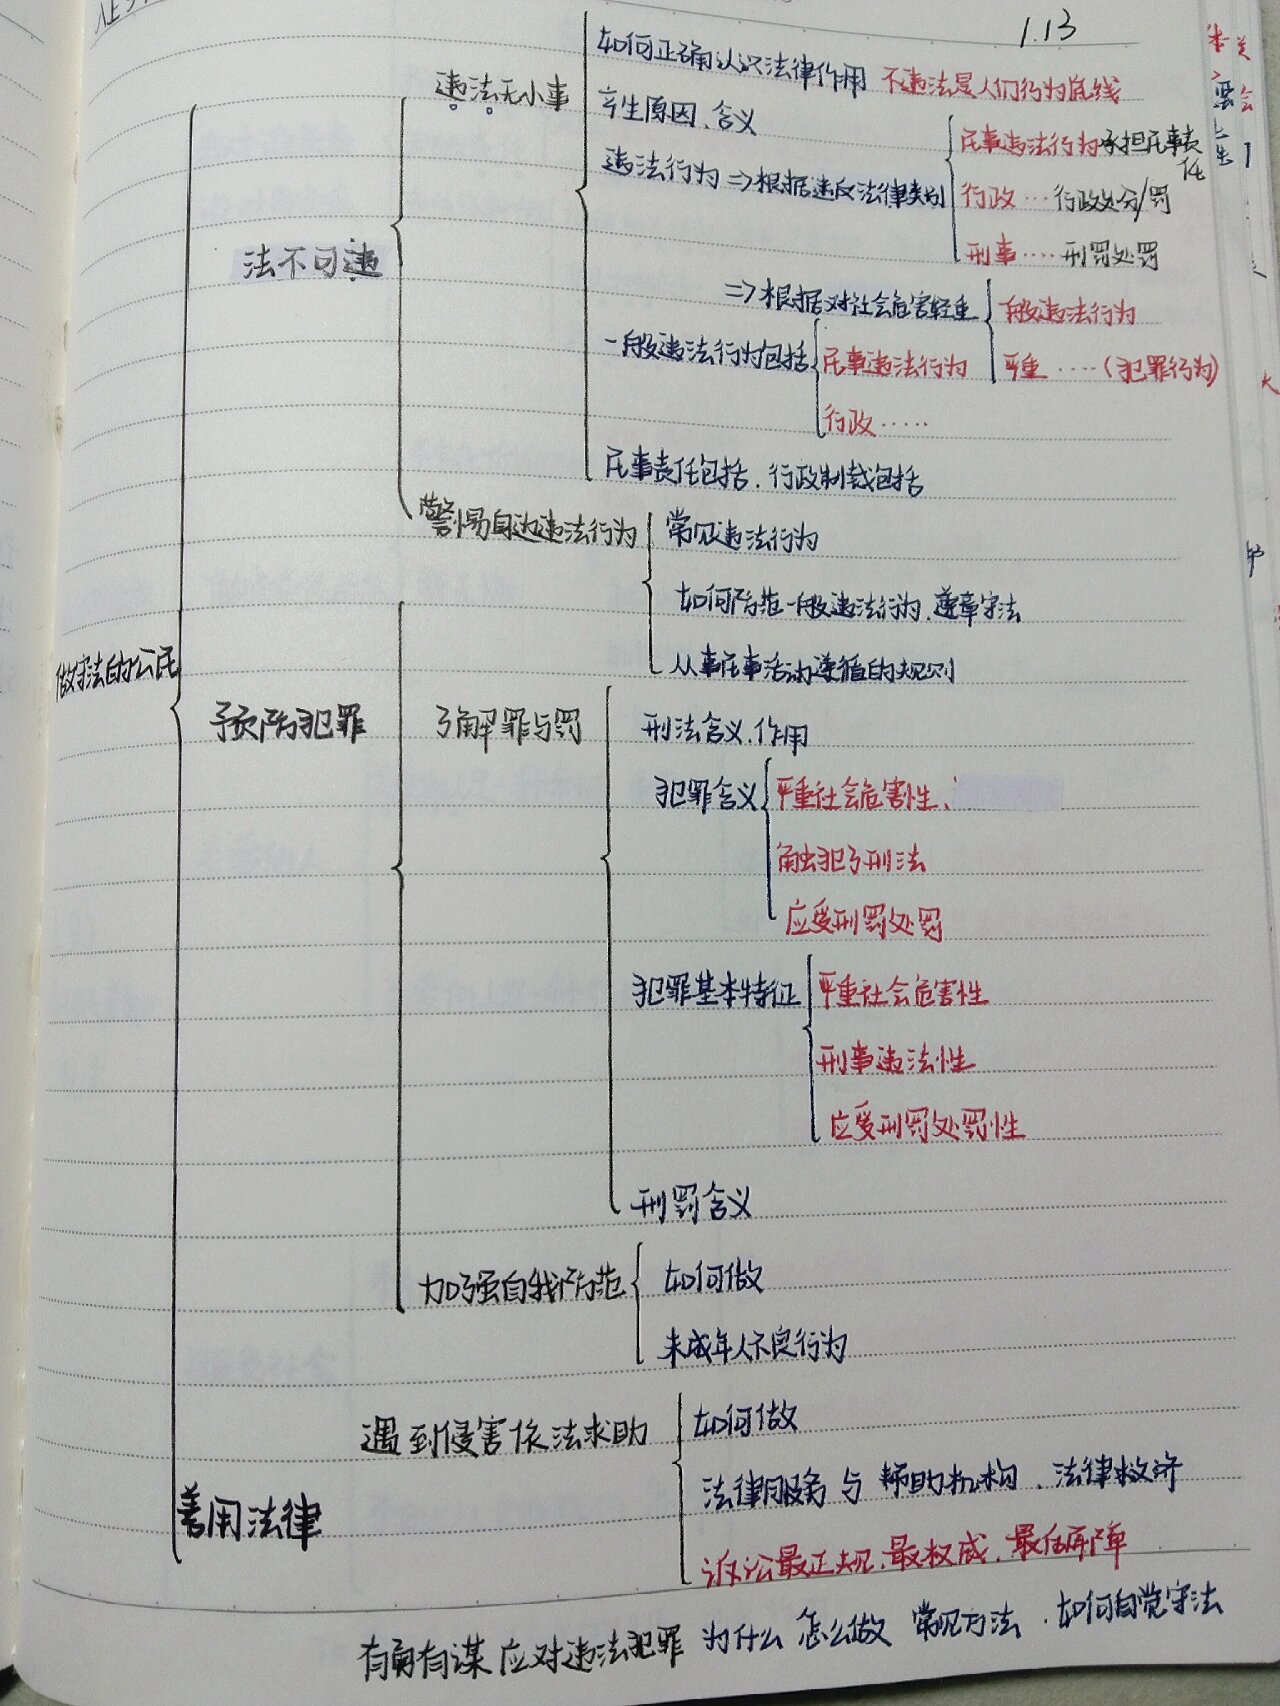 1.13
如何正确认识法律作用 不违法是人们行为底线
违法无小事
产生原因、含义
民事违法行为承担民事责任
违法行为⇒根据违反法律类别
行政…行政处分/罚
刑事……刑罚处罚
法不可违
⇒根据对社会危害轻重
一般违法行为
一般违法行为包括
民事违法行为
严重……(犯罪行为)
行政……
民事责任包括、行政制裁包括
警惕身边违法行为
常见违法行为
如何防范一般违法行为、遵章守法
从事民事活动遵循的规则
做守法的公民
预防犯罪
了解罪与罚
刑法含义、作用
犯罪含义
严重社会危害性、
触犯了刑法
应受刑罚处罚
犯罪基本特征
严重社会危害性
刑事违法性
应受刑罚处罚性
刑罚含义
加强自我防范
如何做
未成年人不良行为
遇到侵害依法求助
如何做
法律服务与帮助机构、法律救济
善用法律
诉讼最正规、最权威、最后屏障
有勇有谋应对违法犯罪 为什么 怎么做 常见方法、如何自觉守法